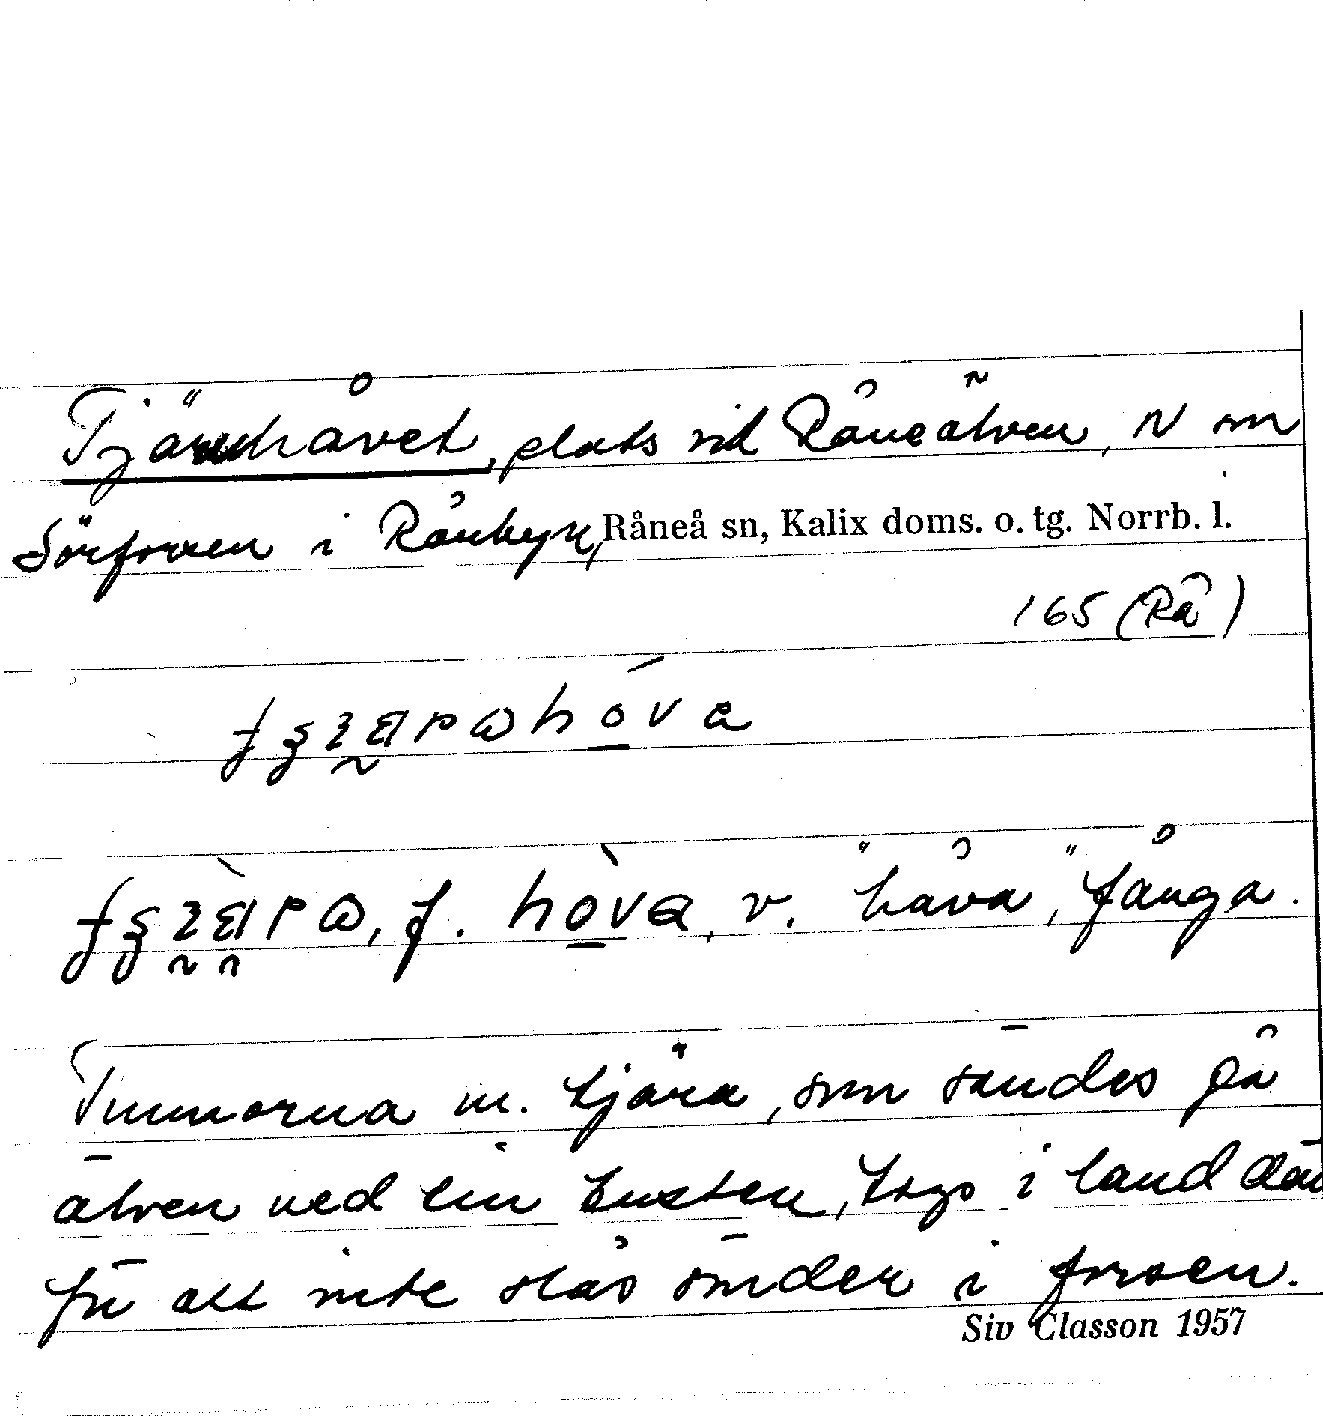 Tjäruhåvet, plats vid Råneälven, N om
Sörforsen i Rånbyn, Råneå sn, Kalix doms. o. tg. Norrb. l.
165 (Rå)
hóva
f. hòva, v. "håva", fånga.
Tunnorna m. tjära, som sändes på
älven ned till kusten, togs i land där
för att inte slås sönder i forsen.
Siv Classon 1957